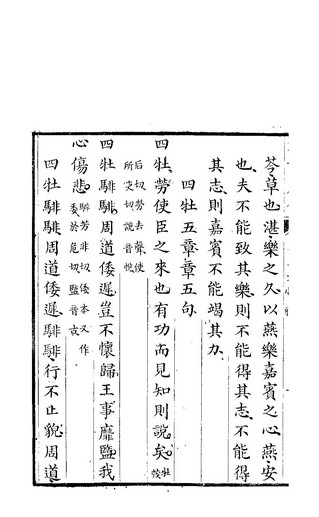 芩草也湛樂之久以燕樂嘉賓之心燕安
也夫不能致其樂則不能得其志不能得
其志則嘉賓不能竭其力
四牡五章章五句
四牡勞使臣之來也有功而見知則說矣牡茂
后切勞去聲使
所吏切說音悅
四牡騑騑周道倭遲豈不懷歸王事靡盬我
心傷悲騑芳非切倭本又作
委於危切盬音古
四牡騑騑周道倭遲騑騑行不止貌周道